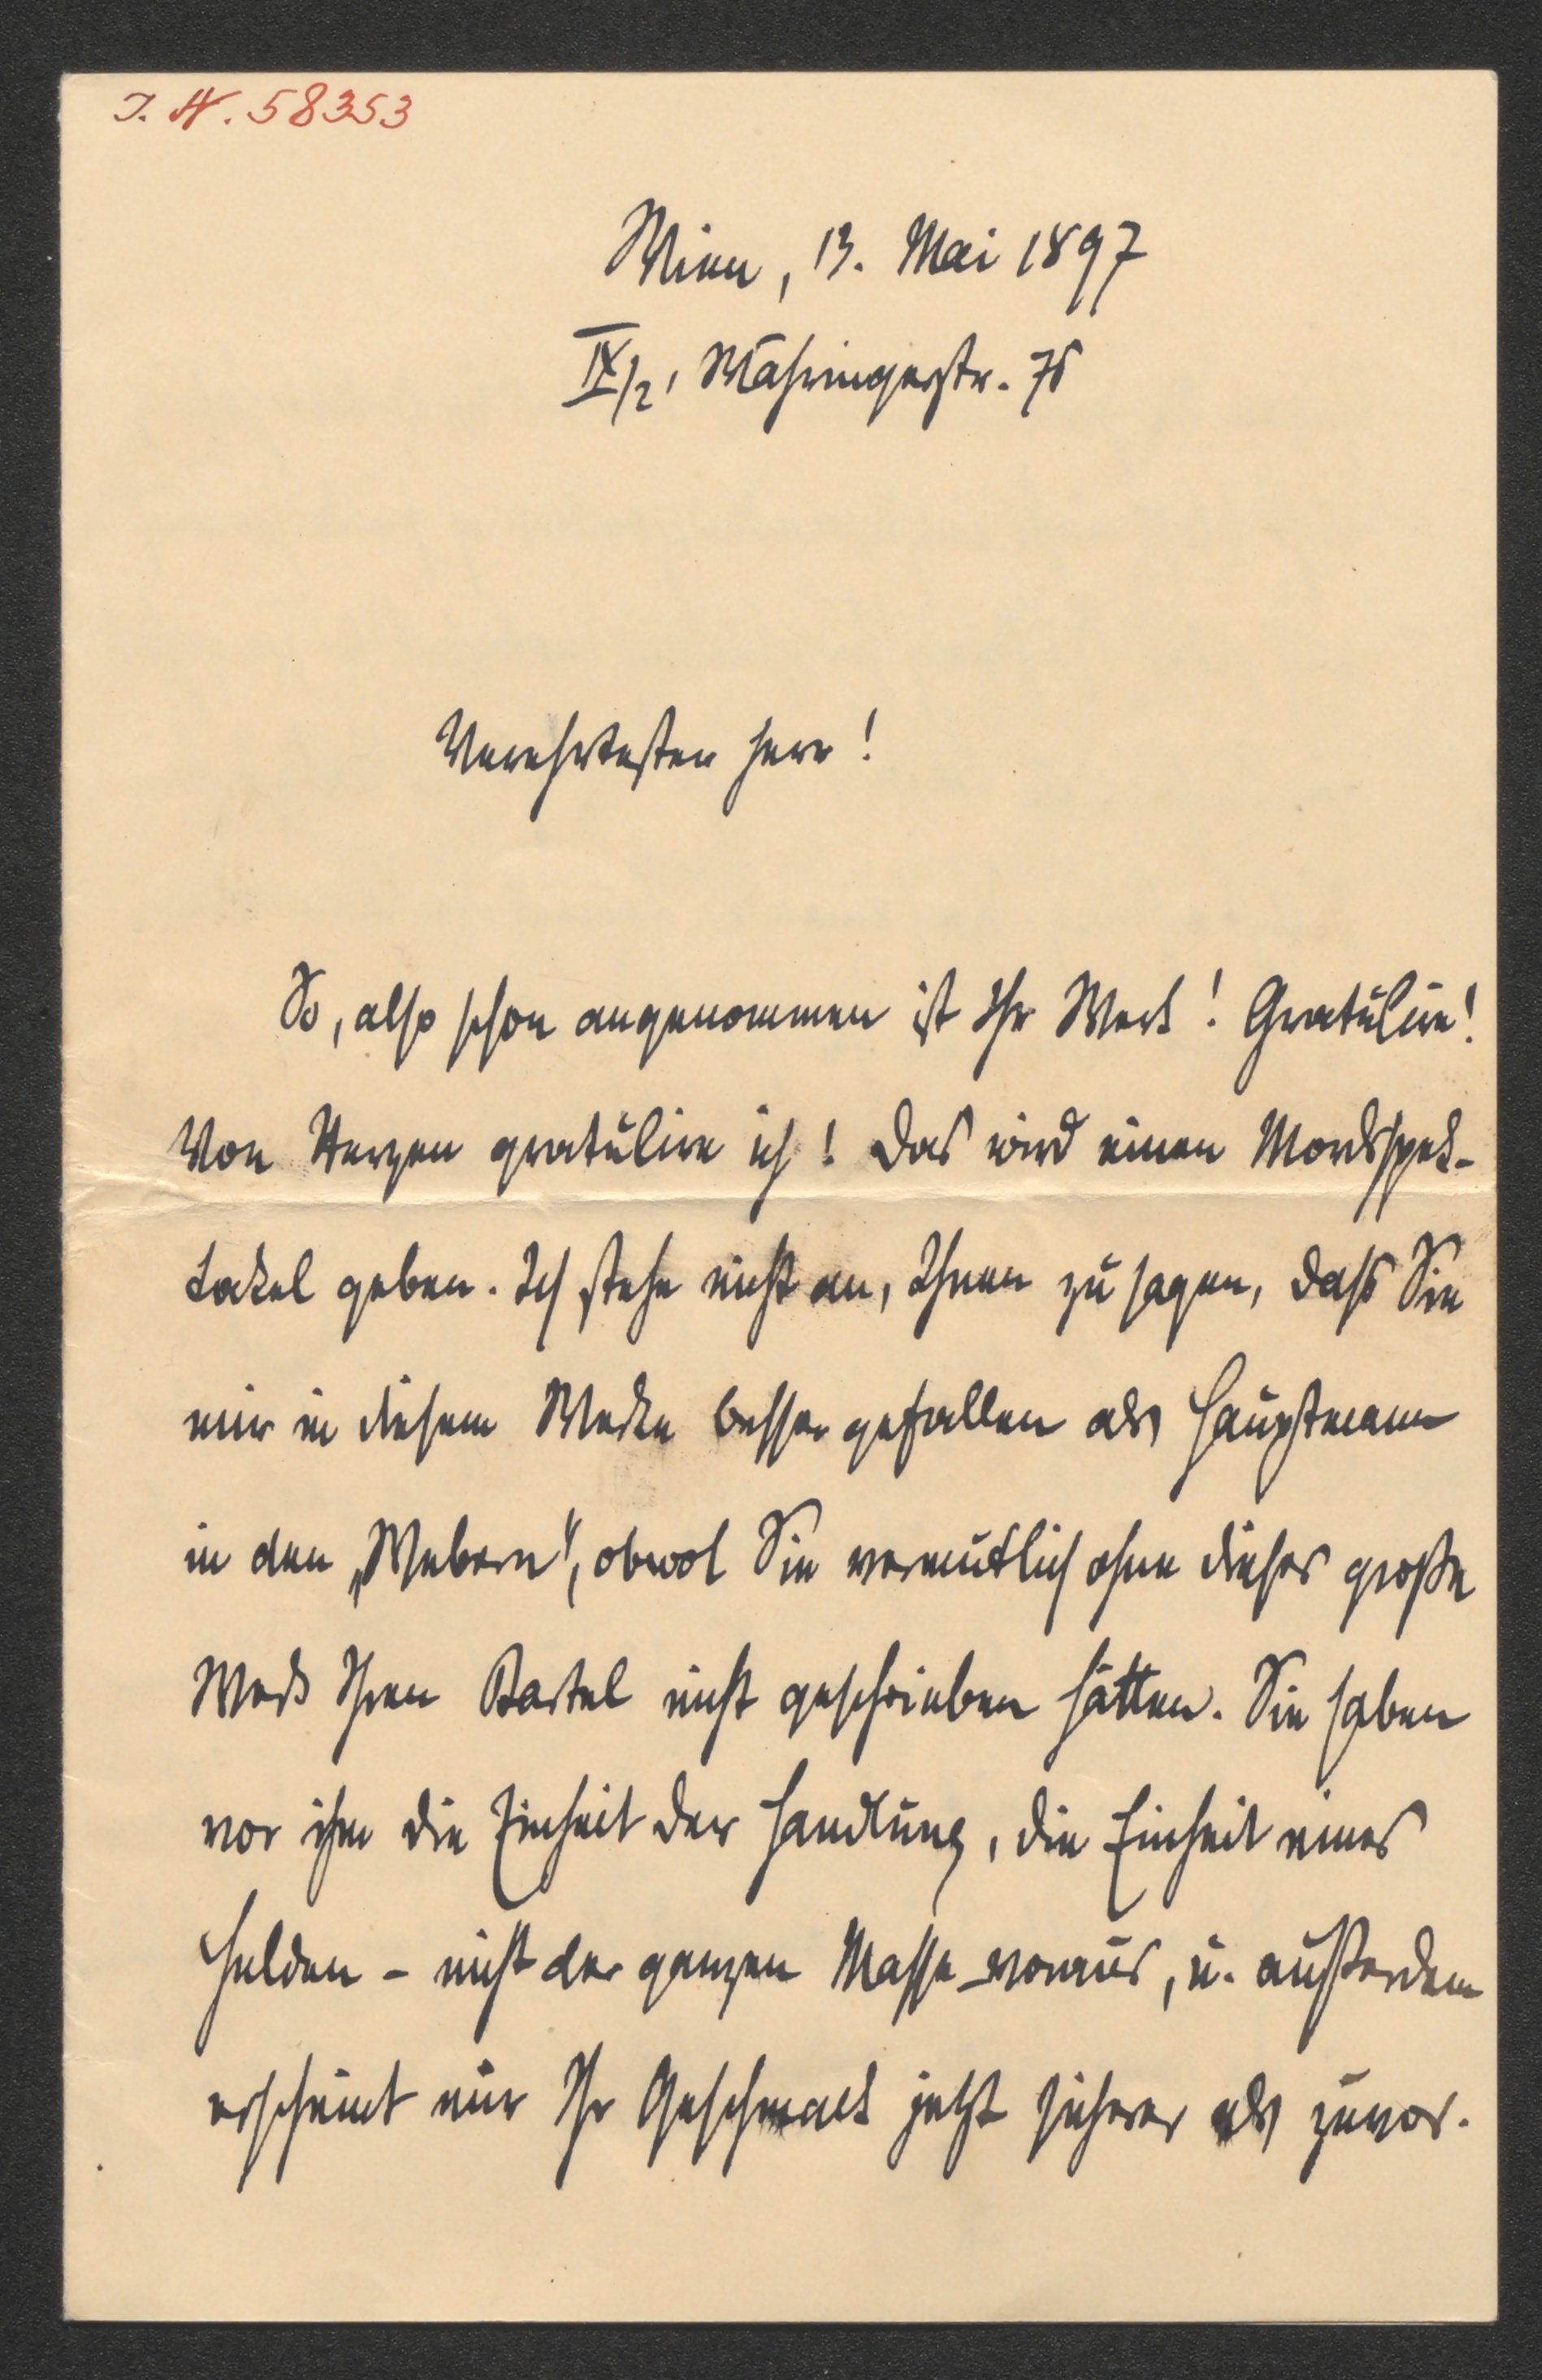 J. N. 58353
Wien, 13. Mai 1897
IX/2, Währingerstr. 76
Verehrtester Herr!
So, also schon angenommen ist Ihr Werk! Gratulire!
Von Herzen gratulire ich! Das wird einen Mordsspek-
takel geben. Ich stehe nicht an, Ihnen zu sagen, daß Sie
mir in diesem Werke besser gefallen als Hauptmann
in den „Webern“, obwol Sie vermutlich ohne dieses große
Werk Ihren Bartel nicht geschrieben hätten. Sie haben
vor ihm die Einheit der Handlung, die Einheit eines
Helden – nicht der ganzen Masse – voraus, u. außerdem
erscheint mir Ihr Geschmack jetzt sicherer als zuvor.